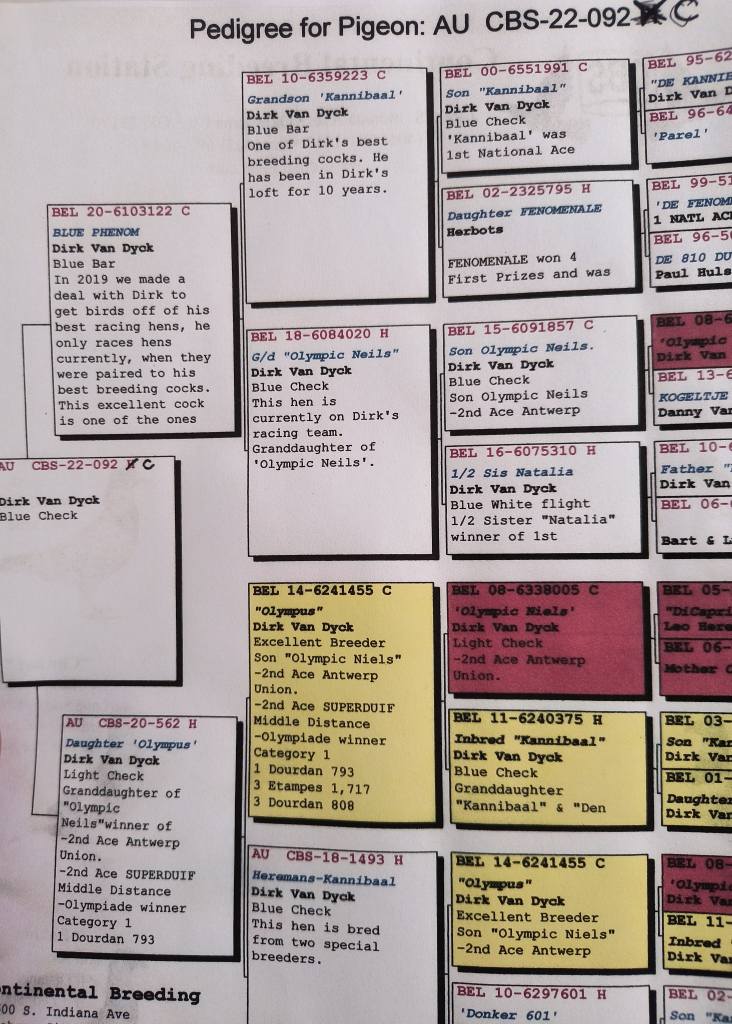 Pedigree for Pigeon: AU CBS-22-092 C
BEL 10-6359223 C
Grandson 'Kannibaal'
Dirk Van Dyck
Blue Bar
One of Dirk's best
breeding cocks. He
has been in Dirk's
loft for 10 years.
BEL 00-6551991 C
Son "Kannibaal"
Dirk Van Dyck
Blue Check
'Kannibaal' was
1st National Ace
BEL 95-62
"DE KANNIB
Dirk Van D
BEL 96-64
'Parel'
BEL 02-2325795 H
Daughter FENOMENALE
Herbots
FENOMENALE won 4
First Prizes and was
BEL 99-51
'DE FENOM
1 NATL ACE
BEL 96-50
DE 810 DU
Paul Huls
BEL 20-6103122 C
BLUE PHENOM
Dirk Van Dyck
Blue Bar
In 2019 we made a
deal with Dirk to
get birds off of his
best racing hens, he
only races hens
currently, when they
were paired to his
best breeding cocks.
This excellent cock
is one of the ones
BEL 18-6084020 H
G/d "Olympic Neils"
Dirk Van Dyck
Blue Check
This hen is
currently on Dirk's
racing team.
Granddaughter of
'Olympic Neils'.
BEL 15-6091857 C
Son Olympic Neils.
Dirk Van Dyck
Blue Check
Son Olympic Neils
-2nd Ace Antwerp
BEL 08-6
'Olympic
Dirk Van
BEL 13-6
KOGELTJE
Danny Van
BEL 16-6075310 H
1/2 Sis Natalia
Dirk Van Dyck
Blue White flight
1/2 Sister "Natalia"
winner of 1st
BEL 10-6
Father "
Dirk Van
BEL 06-
Bart & L
AU CBS-22-092 C
Dirk Van Dyck
Blue Check
BEL 14-6241455 C
"Olympus"
Dirk Van Dyck
Excellent Breeder
Son "Olympic Niels"
-2nd Ace Antwerp
Union.
-2nd Ace SUPERDUIF
Middle Distance
-Olympiade winner
Category 1
1 Dourdan 793
3 Etampes 1,717
3 Dourdan 808
BEL 08-6338005 C
'Olympic Niels'
Dirk Van Dyck
Light Check
-2nd Ace Antwerp
Union.
BEL 05-
"DiCapri
Leo Here
BEL 06-
Mother O
BEL 11-6240375 H
Inbred "Kannibaal"
Dirk Van Dyck
Blue Check
Granddaughter
"Kannibaal" & "Den
BEL 03-
Son "Kan
Dirk Van
BEL 01-
Daughter
Dirk Var
AU CBS-20-562 H
Daughter 'Olympus'
Dirk Van Dyck
Light Check
Granddaughter of
"Olympic
Neils"winner of
-2nd Ace Antwerp
Union.
-2nd Ace SUPERDUIF
Middle Distance
-Olympiade winner
Category 1
1 Dourdan 793
AU CBS-18-1493 H
Heremans-Kannibaal
Dirk Van Dyck
Blue Check
This hen is bred
from two special
breeders.
BEL 14-6241455 C
"Olympus"
Dirk Van Dyck
Excellent Breeder
Son "Olympic Niels"
-2nd Ace Antwerp
BEL 08-
'Olympi
Dirk Va
BEL 11-
Inbred
Dirk Va
BEL 10-6297601 H
'Donker 601'
BEL 02-
Son "Ka
ntinental Breeding
00 S. Indiana Ave